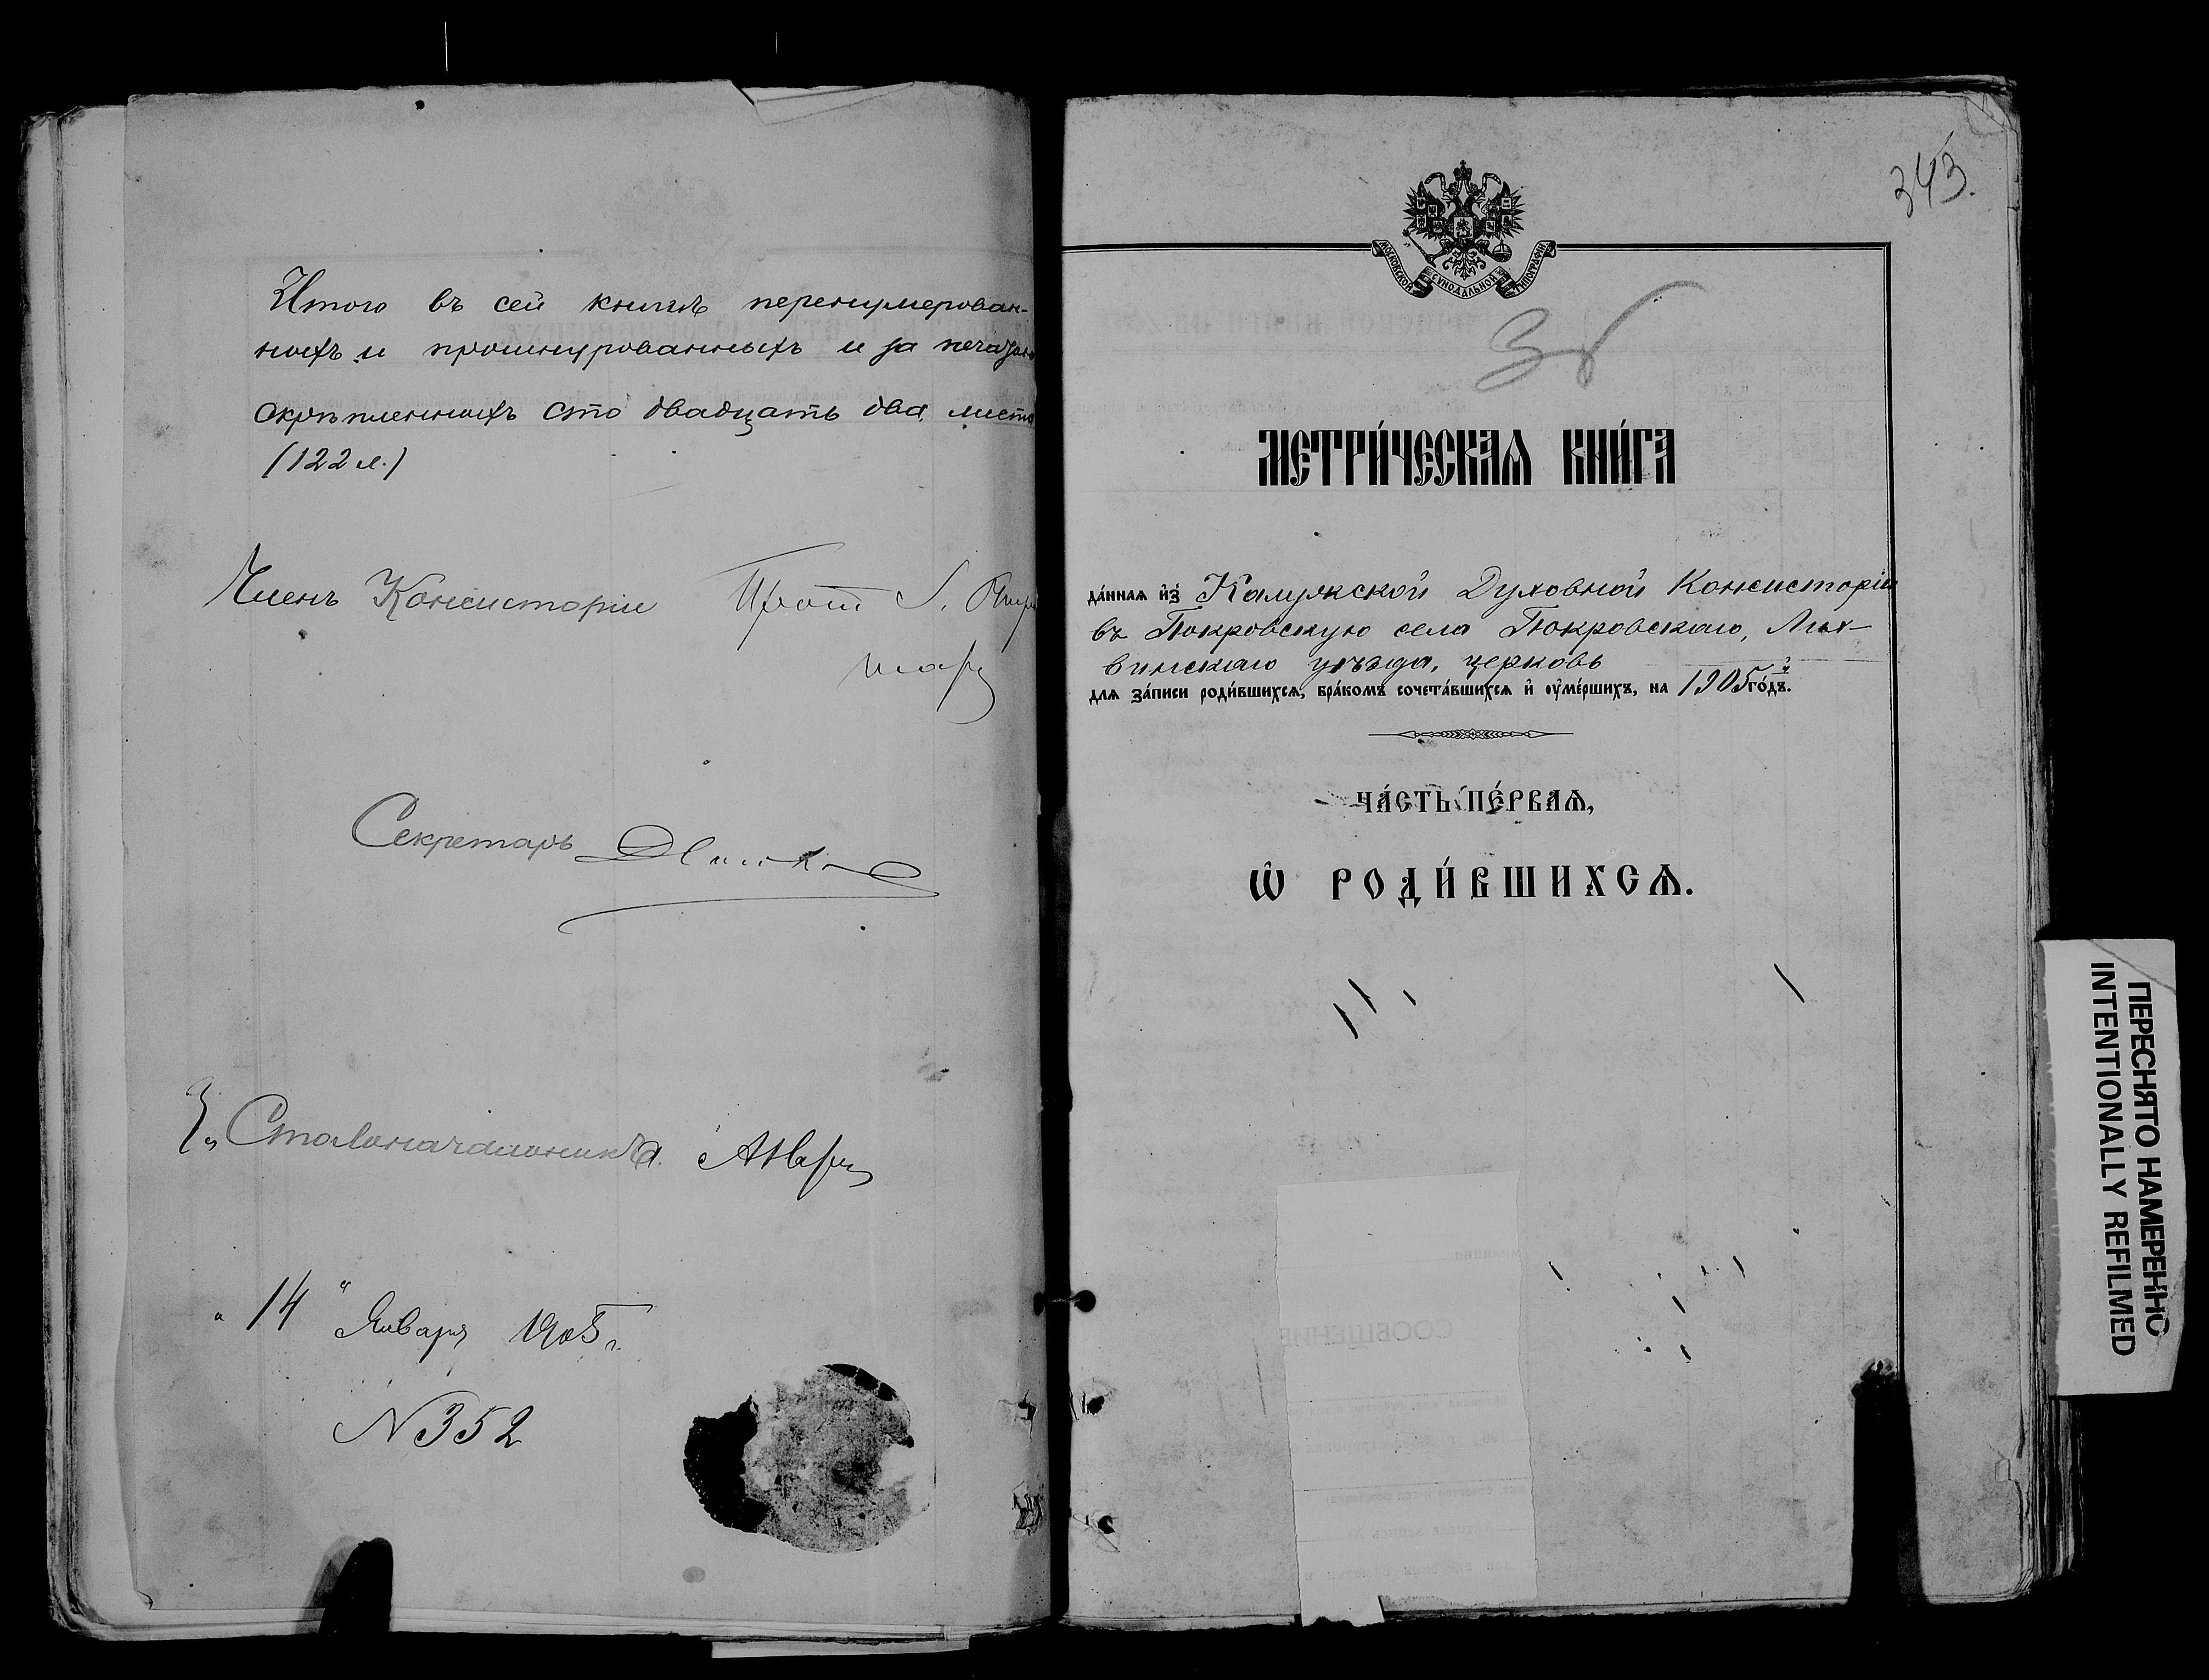 Итого въ сей книгѣ перенумерован-
ныхъ и прошнурованныхъ и за печатью
скрѣпленныхъ сто двадцать два листа
(122 л.)
Членъ Консисторіи Прот
Секретарь
Столоначальника
" 14 " Января 1905 г.
N 352
343.
МОСКОВСКОЙ СѴНОДАЛЬНОЙ ТИПОГРАФІИ
МЕТРИ́ЧЕСКАѦ КНИ́ГА
да́ннаѧ и҆з̾ Калужской Духовной Консисторіи
въ Покровскую села Покровскаго, Лих-
винскаго уѣзда, церковь
длѧ за́писи роди́вшихсѧ, бра́комъ сочета́вшихсѧ и҆ ᲂу҆ме́ршихъ, на 1905й го́дъ.
ЧА́СТЬ ПЕ́РВАѦ,
Ѡ҆ РОДИ́ВШИХСѦ.
СООБЩЕНИЕ
ПЕРЕСНЯТО НАМЕРЕННО
INTENTIONALLY REFILMED